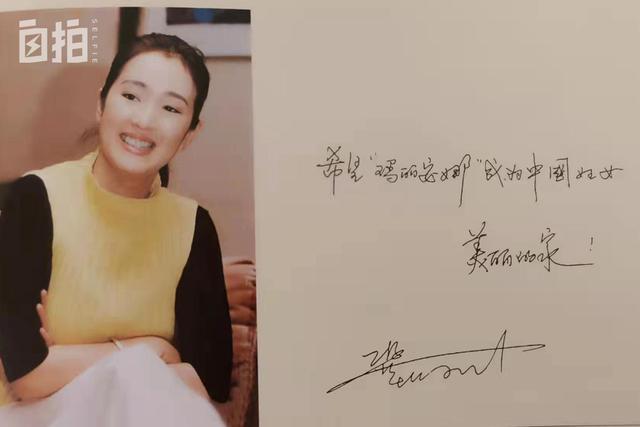 自拍
SELFIE
希望“玛丽安娜”成为中国妇女
美丽的家！